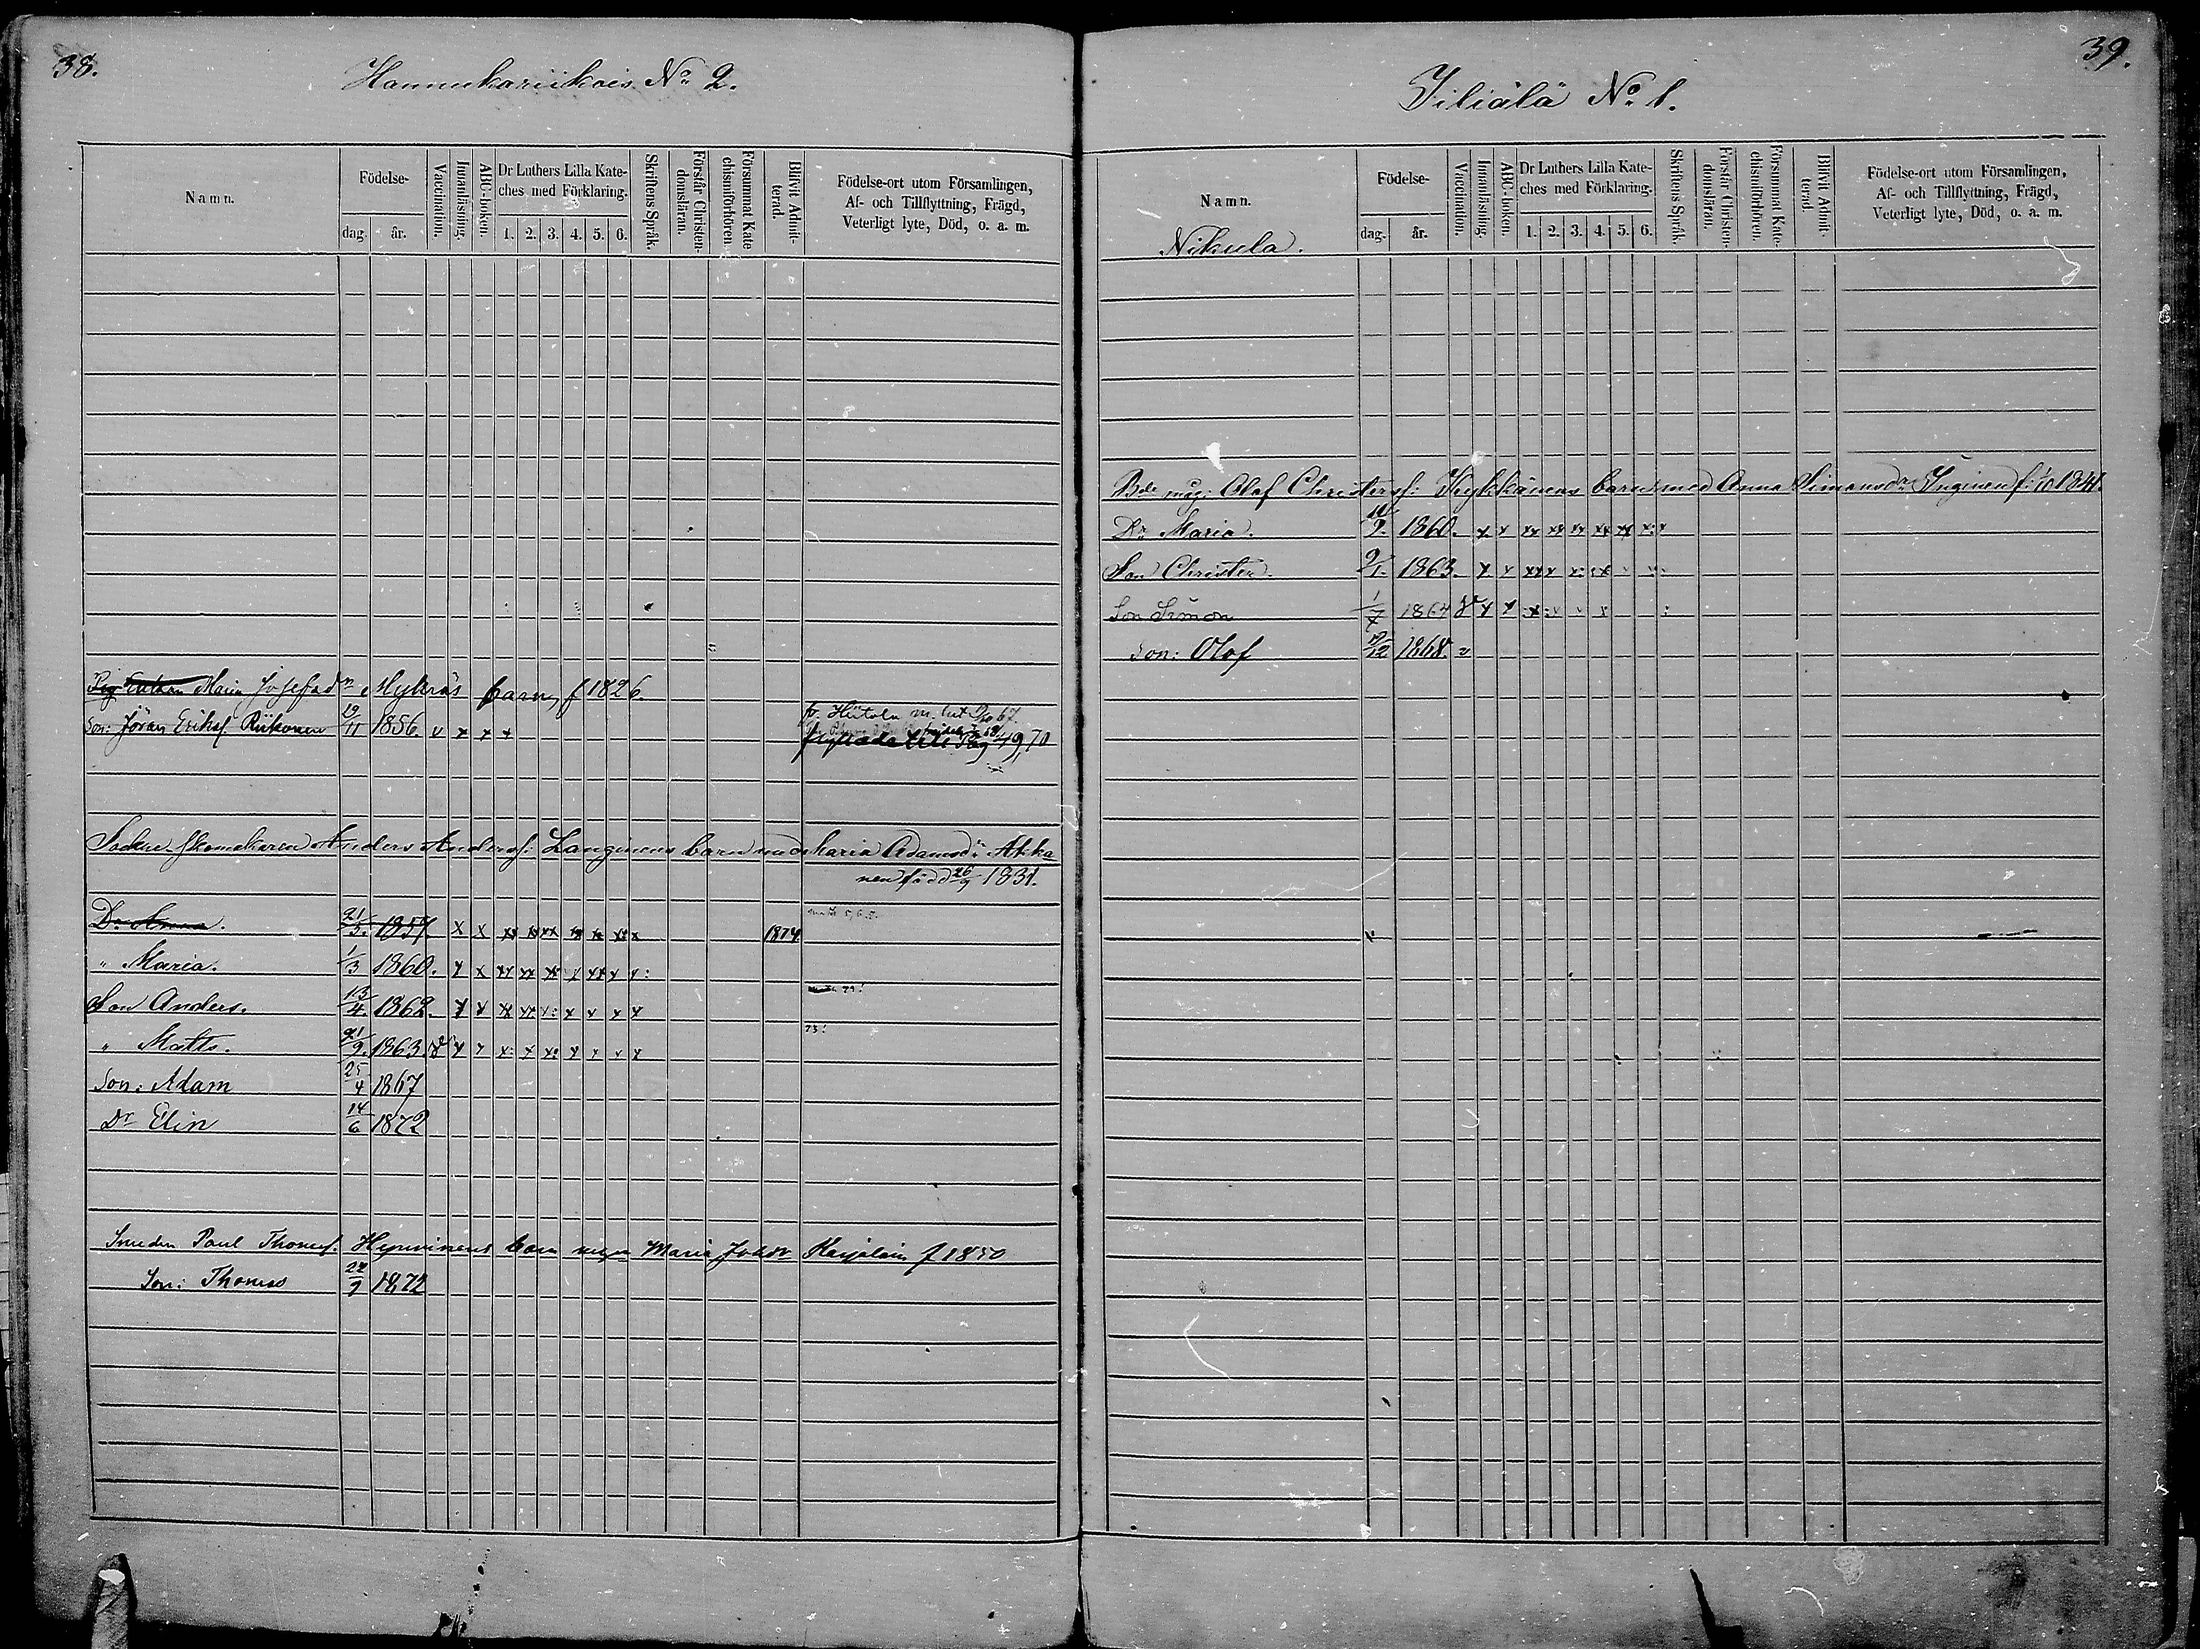 38.
Hannukariikois No 2.
Namn.
Födelse-
dag.
år.
Vaccination.
Innanläsning.
ABC-boken.
Dr Luthers Lilla Kate-
ches med Förklaring.
1. 2. 3. 4. 5. 6.
Skriftens Språk.
Förstår Christen-
domsläran.
Försummat Kate
chismiförhören.
Blifvit Admit-
terad.
Födelse-ort utom Församlingen,
Af- och Tillflyttning, Frägd,
Veterligt lyte, Död, o. a. m.
Maria Josefsdr Mykräs barn, f 1826.
Son: Jöran Eriksf. Riikonen 19/11 1856. v x x x
Skomakaren Anders Andersf: Langinens barn med Maria Adamsdr Atika
nen född 26/9 1831.
Dr Anna. 21/5. 1857. x x xx xx xx xx x xx x 1874
" Maria. 1/3 1860. x x xx xx xx x xx x x:
Son Anders. 13/4. 1862. x x xx xx x: x x x x
73!
" Matts. 21/9. 1863. v x x x: x x: x x x x
Son: Adam 25/4 1867
Dr Elin 14/6 1872
Smeden Paul Thomasf. Hyvvinens barn Maria Johdr Karjalain f 1850
Son: Thomas 22/9 1872
39.
Yiliälä No 1.
Namn.
Nikula.
Födelse-
dag.
år.
Vaccination.
Innanläsning.
ABC-boken.
Dr Luthers Lilla Kate-
ches med Förklaring.
1. 2. 3. 4. 5. 6.
Skriftens Språk.
Förstår Christen-
domsläran.
Försummat Kate-
chismiförhören.
Blifvit Admit-
terad.
Födelse-ort utom Församlingen,
Af- och Tillflyttning, Frägd,
Veterligt lyte, Död, o. a. m.
Bde måg: Olof Christersf: barn med Anna Simonsdr Inginen
Dr Maria. 1860. x x xx xx xx xx xx x: x
Son Christer. 2/1. 1863. x x xxx x: :x
Son Simon 1/7 1864 v x x
Son: Olof 1868. v